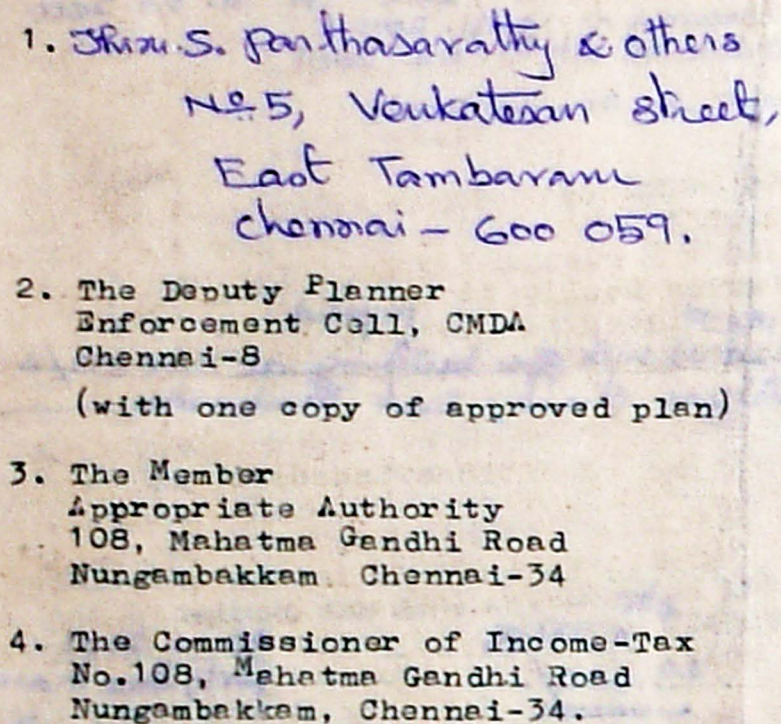 1. Thiru.S. Parthasarathy & others
No 5, Venkatesan street,
East Tambaram
Chennai - 600 059.
2. The Deputy Planner
Enforcement Cell, CMDA
Chennai-8
(with one copy of approved plan)
3. The Member
Appropriate Authority
108, Mahatma Gandhi Road
Nungambakkam Chennai-34
4. The Commissioner of Income-Tax
No.108, Mahatma Gandhi Road
Nungambakkam, Chennai-34.